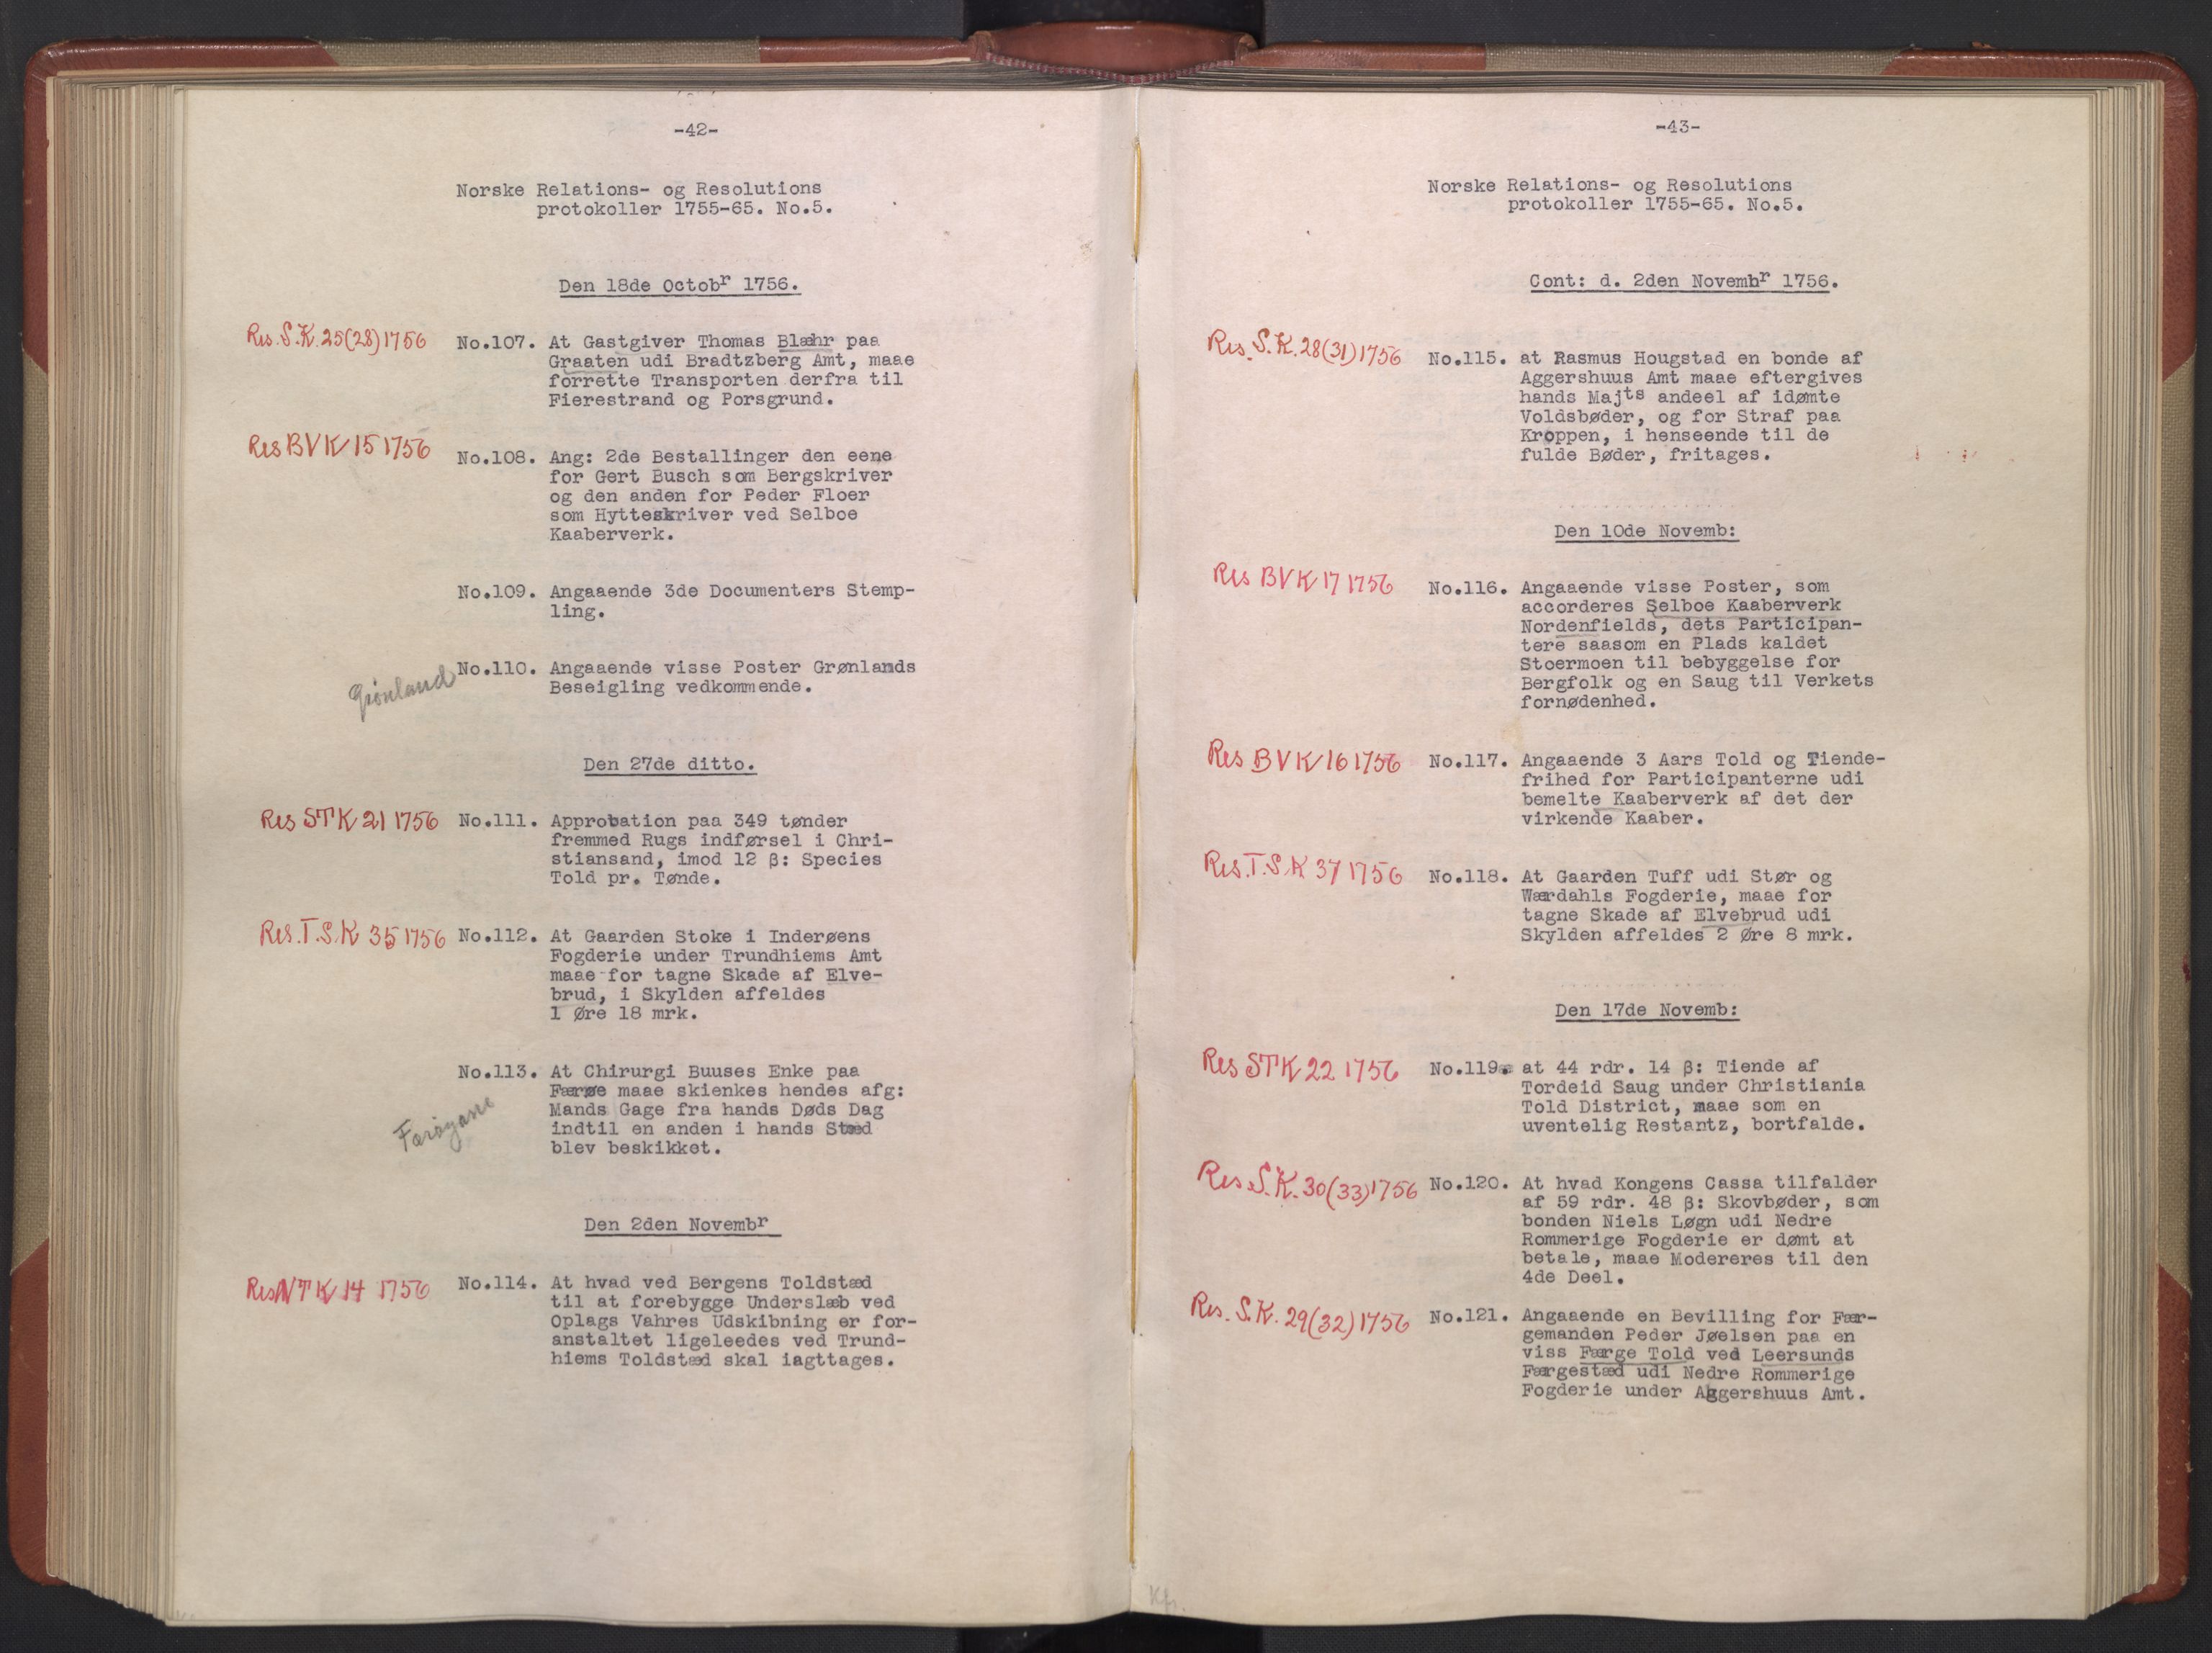 -42-
Norske Relations- og Resolutions
protokoller 1755-65. No.5.
Den 18de Octobr 1756.
Res. S.K. 25(28)1756
No.107. At Gastgiver Thomas Blæhr paa
Graaten udi Bradtzberg Amt, maae
forrette Transporten derfra til
Fierestrand og Porsgrund.
Res BVK 15 1756
No.108. Ang: 2de Bestallinger den eene
for Gert Busch som Bergskriver
og den anden for Peder Floer
som Hytteskriver ved Selboe
Kaaberverk.
No.109. Angaaende 3de Documenters Stemp-
ling.
Grönland
No.110. Angaaende visse Poster Grønlands
Beseigling vedkommende.
Den 27de ditto.
Res STK 21 1756
No.111. Approbation paa 349 tønder
fremmed Rugs indførsel i Chri-
stiansand, imod 12 β: Species
Told pr. Tønde.
Res. T.S.K 35 1756
No.112. At Gaarden Stoke i Inderøens
Fogderie under Trundhiems Amt
maae for tagne Skade af Elve-
brud, i Skylden affeldes
1 Øre 18 mrk.
No.113. At Chirurgi Buuses Enke paa
Færøe maae skienkes hendes afg:
Mands Gage fra hands Døds Dag
indtil en anden i hands Stæd
blev beskikket.
Færøyane
Den 2den Novembr
Res NTK 14 1756
No.114. At hvad ved Bergens Toldstæd
til at forebygge Underslæb ved
Oplags Vahres Udskibning er for-
anstaltet ligeleedes ved Trund-
hiems Toldstæd skal iagttages.
-43-
Norske Relations- og Resolutions
protokoller 1755-65. No.5.
Cont: d. 2den Novembr 1756.
Res. S.K. 28(31)1756
No.115. at Rasmus Hougstad en bonde af
Aggershuus Amt maae eftergives
hands Majts andeel af idømte
Voldsbøder, og for Straf paa
Kroppen, i henseende til de
fulde Bøder, fritages.
Den 10de Novemb:
Res BVK 17 1756
No.116. Angaaende visse Poster, som
accorderes Selboe Kaaberverk
Nordenfields, dets Participan-
tere saasom en Plads kaldet
Stoermoen til bebyggelse for
Bergfolk og en Saug til Verkets
fornødenhed.
Res BVK 16 1756
No.117. Angaaende 3 Aars Told og Tiende-
frihed for Participanterne udi
bemelte Kaaberverk af det der
virkende Kaaber.
Res. T.S.K 37 1756
No.118. At Gaarden Tuff udi Stør og
Wærdahls Fogderie, maae for
tagne Skade af Elvebrud udi
Skylden affeldes 2 Øre 8 mrk.
Den 17de Novemb:
Res STK 22 1756
No.119. at 44 rdr. 14 β: Tiende af
Tordeid Saug under Christiania
Told District, maae som en
uventelig Restantz, bortfalde.
Res. S.K. 30(33)1756
No.120. At hvad Kongens Cassa tilfalder
af 59 rdr. 48 β: Skovbøder, som
bonden Niels Løgn udi Nedre
Rommerige Fogderie er dømt at
betale, maae Modereres til den
4de Deel.
Res. S.K. 29(32)1756
No.121. Angaaende en Bevilling for Fær-
gemanden Peder Jøelsen paa en
viss Færge Told ved Leersunds
Færgestæd udi Nedre Rommerige
Fogderie under Aggershuus Amt.
Kfr.